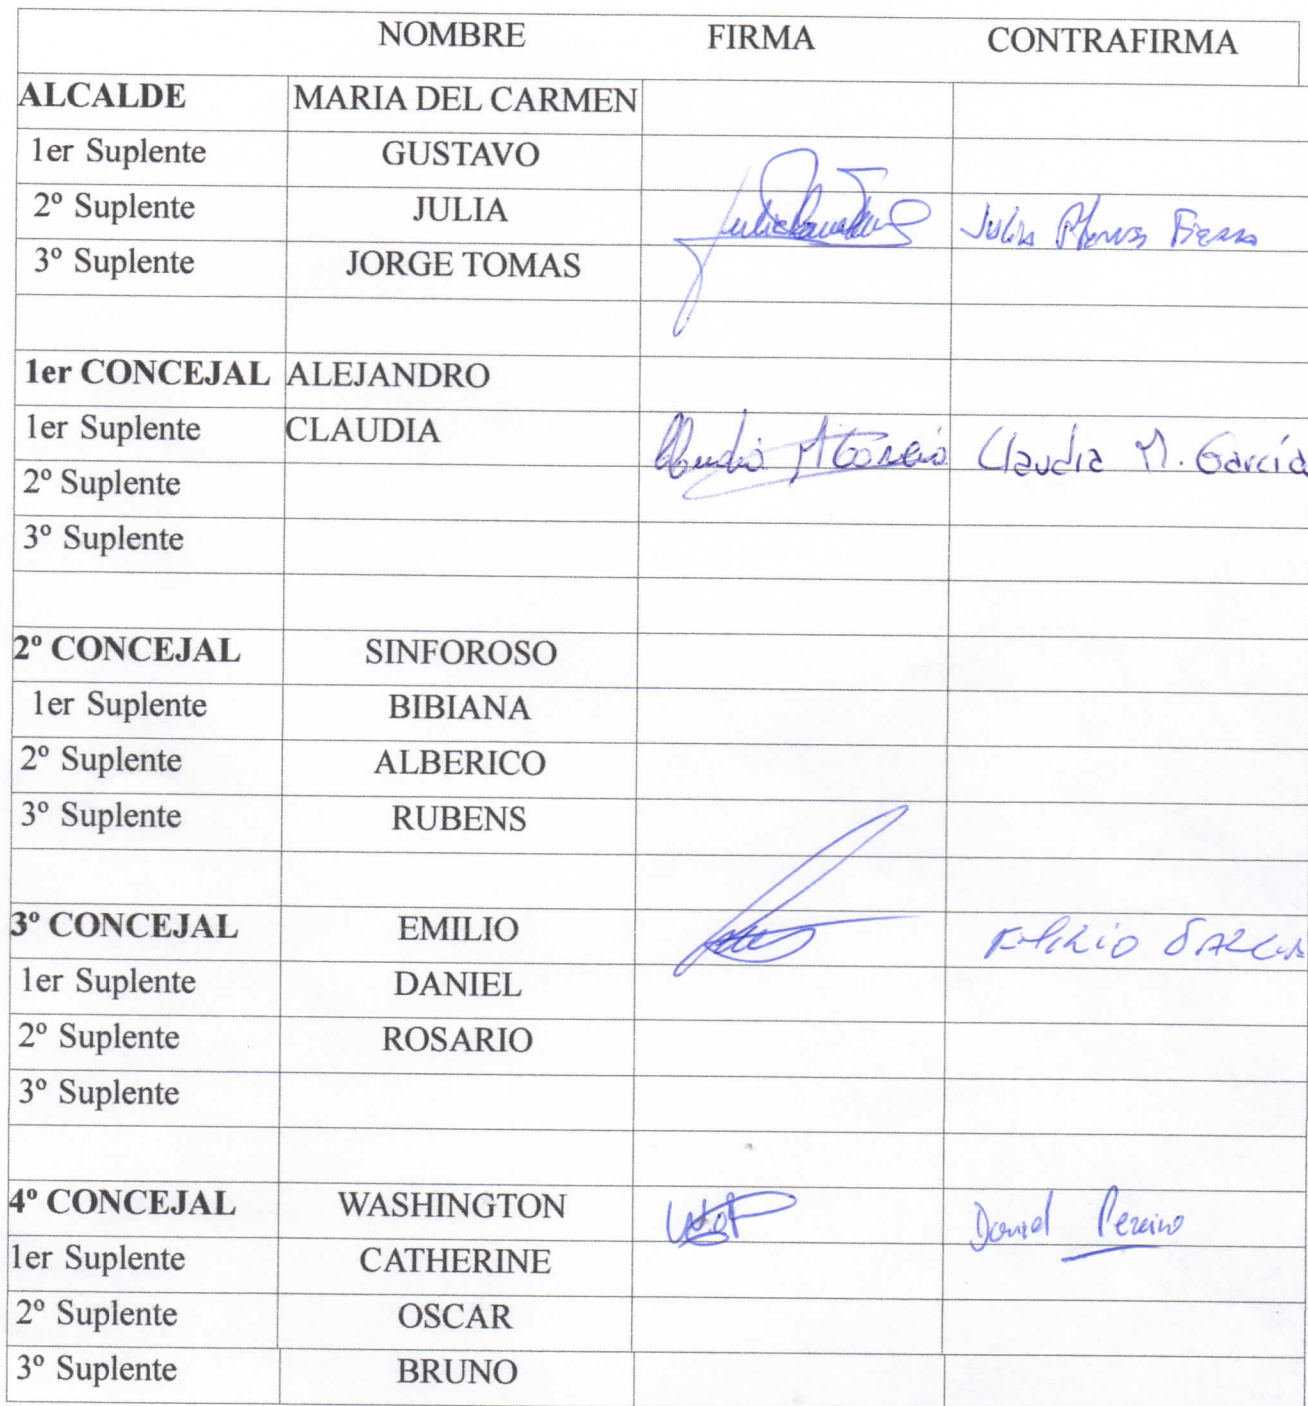 NOMBRE FIRMA CONTRAFIRMA
ALCALDE MARIA DEL CARMEN
1er Suplente GUSTAVO
2º Suplente JULIA Julia
3º Suplente JORGE TOMAS
1er CONCEJAL ALEJANDRO
1er Suplente CLAUDIA Claudia M. García
2º Suplente
3º Suplente
2º CONCEJAL SINFOROSO
1er Suplente BIBIANA
2º Suplente ALBERICO
3º Suplente RUBENS
3º CONCEJAL EMILIO
1er Suplente DANIEL
2º Suplente ROSARIO
3º Suplente
4º CONCEJAL WASHINGTON Daniel
1er Suplente CATHERINE
2º Suplente OSCAR
3º Suplente BRUNO